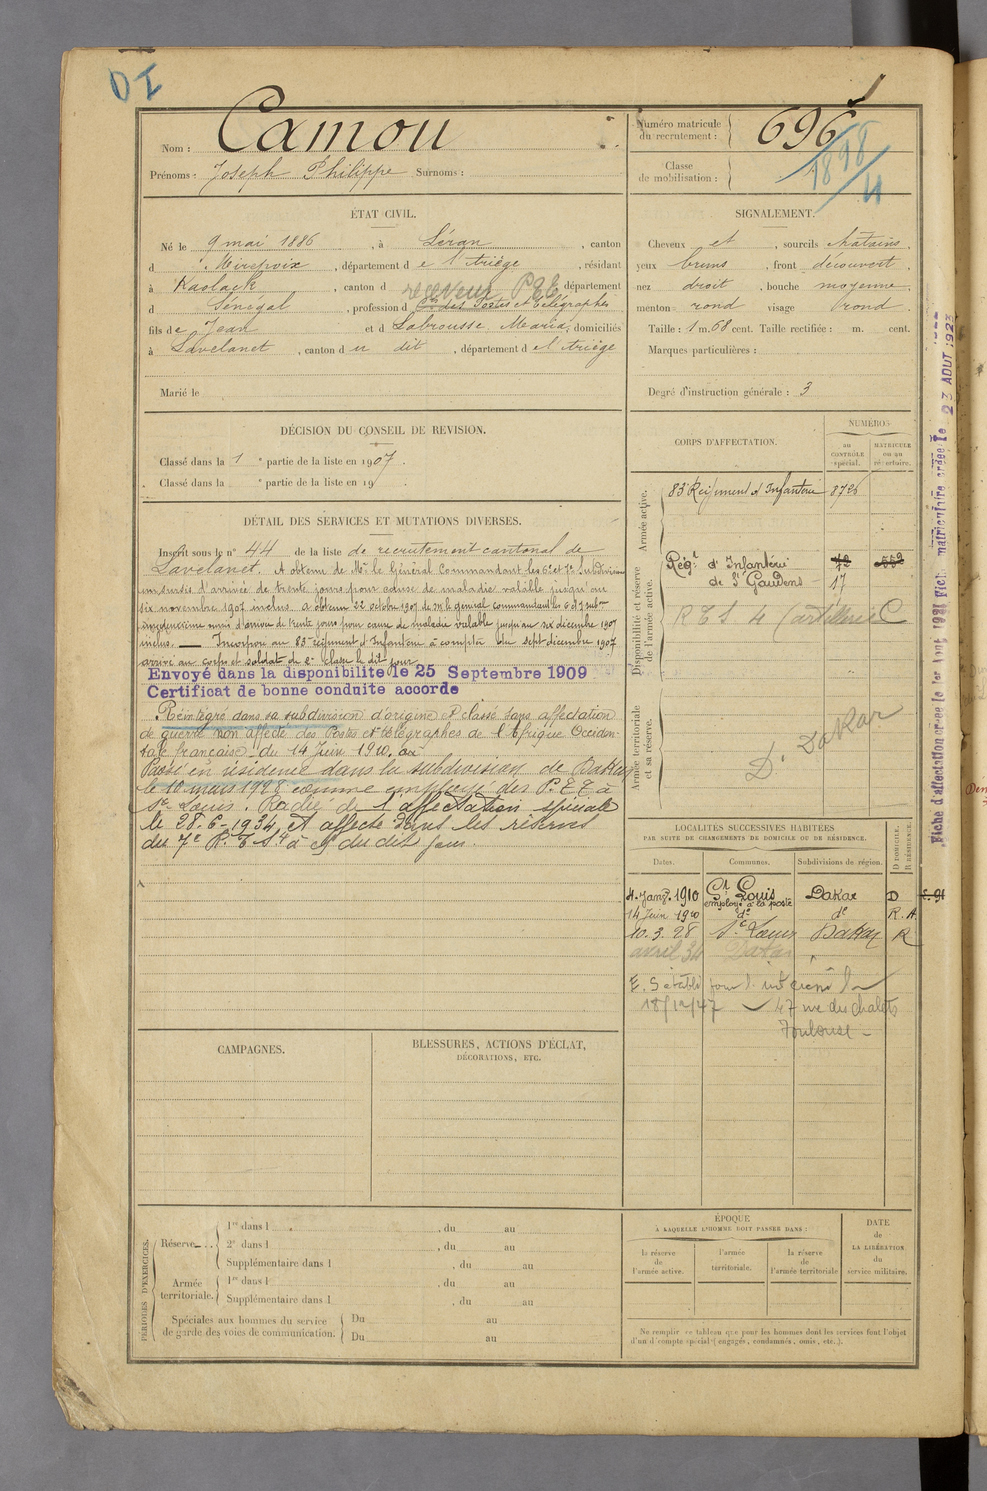 DI
1
Nom : Camou
Prénoms : Joseph Philippe Surnoms :
Numéro matricule du recrutement : 696
Classe de mobilisation : 1898/4
ÉTAT CIVIL.
Né le 9 mai 1886 , à Léran , canton
d Mirepoix , département d e l'Ariège , résidant
à Kaolack , canton d receveur PTT département
d Sénégal , profession d des Postes et télégraphes
fils de Jean et d Labrousse Maria, domiciliés
à Lavelanet , canton d u dit , département d e l'Ariège
Marié le
SIGNALEMENT.
Cheveux et , sourcils châtains .
yeux bruns , front découvert .
nez droit , bouche moyenne .
menton rond visage rond .
Taille : 1 m. 68 cent. Taille rectifiée : m. cent.
Marques particulières :
Degré d'instruction générale : 3
DÉCISION DU CONSEIL DE REVISION.
Classé dans la 1 e partie de la liste en 1907 .
Classé dans la e partie de la liste en 19
DÉTAIL DES SERVICES ET MUTATIONS DIVERSES.
Inscrit sous le n° 44 de la liste de recrutement cantonal de
Lavelanet. A obtenu de Mr le Général Commandant les 6e et 7e Subdivisions
un sursis d'arrivée de trente jours pour cause de maladie valable jusqu'au
six novembre 1907 inclus. a obtenu 22 octobre 1907 de mr le général commandant les 6 et 7 subon
un deuxième sursis d'arrivée de trente jours pour cause de maladie valable jusqu'au six décembre 1907
inclus. — Incorporé au 83e régiment d'Infanterie à compter du sept décembre 1907
arrivé au corps et soldat de 2e classe le dit jour.
Envoyé dans la disponibilité le 25 Septembre 1909
Certificat de bonne conduite accordé
Réintégré dans sa subdivision d'origine et classé sans affectation
de guerre non affecté des Postes et télégraphes de l'Afrique Occiden-
tale française du 14 Juin 1910.
Passé en résidence dans la subdivision de Dakar
le 10 mars 1928 comme employé des P.T.T à
St Louis. Radié de l'affectation spéciale
le 28-6-1934 et affecté dans les réserves
du 7e R.T.S. du dit jour.
CORPS D'AFFECTATION.
NUMÉROS
AU CONTRÔLE spécial.
MATRICULE ou au répertoire.
Armée active.
83e Régiment d'Infanterie 8726
Disponibilité et réserve de l'armée active.
Régt d'Infanterie
de St Gaudens 17
R T S 4 (artillerie C
Armée territoriale et sa réserve.
Dt Dakar
LOCALITÉS SUCCESSIVES HABITÉES
PAR SUITE DE CHANGEMENTS DE DOMICILE OU DE RÉSIDENCE.
Dates. Communes. Subdivisions de région.
D DOMICILE. R RÉSIDENCE.
4. Janv. 1910 St Louis employé à la poste Dakar D
14 Juin 1910 do do R. A.
10.3.28 St Louis Dakar R
avril 34 Dakar
18/12/47 47 rue des chalets
Toulouse
Fiche d'affectation créée le 1er Août 1921 Fiche matriculaire créée le 23 AOUT 1923
CAMPAGNES.
BLESSURES, ACTIONS D'ÉCLAT,
DÉCORATIONS, ETC.
PÉRIODES D'EXERCICES.
Réserve
1re dans l , du au
2e dans l , du au
Supplémentaire dans l , du au
Armée territoriale.
1re dans l , du au
Supplémentaire dans l , du au
Spéciales aux hommes du service
de garde des voies de communication.
Du au
Du au
ÉPOQUE
À LAQUELLE L'HOMME DOIT PASSER DANS :
la réserve de l'armée active.
l'armée territoriale.
la réserve de l'armée territoriale
DATE
de
LA LIBÉRATION
du
service militaire.
Ne remplir ce tableau que pour les hommes dont les services font l'objet
d'un d'compte spécial (engagés, condamnés, omis, etc.).